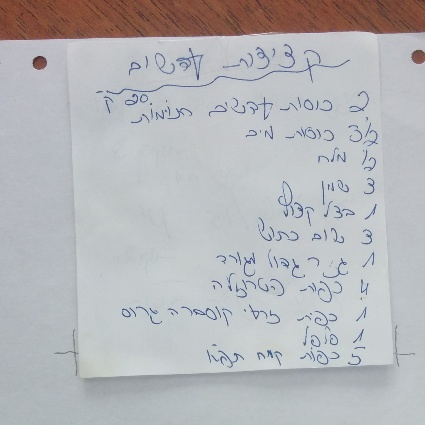 קציצות עדשים
2 כוסות עדשים כתומות 20 ק'
3½ כוסות מים
מלח
3 שמן
1 בצל קצוץ
3 שום כתוש
1 גזר גדול מגורד
4 כפות פטרוזיליה
1 כפית זרעי קוסברה גרוס
1 פלפל
5 כפות קמח תפוח